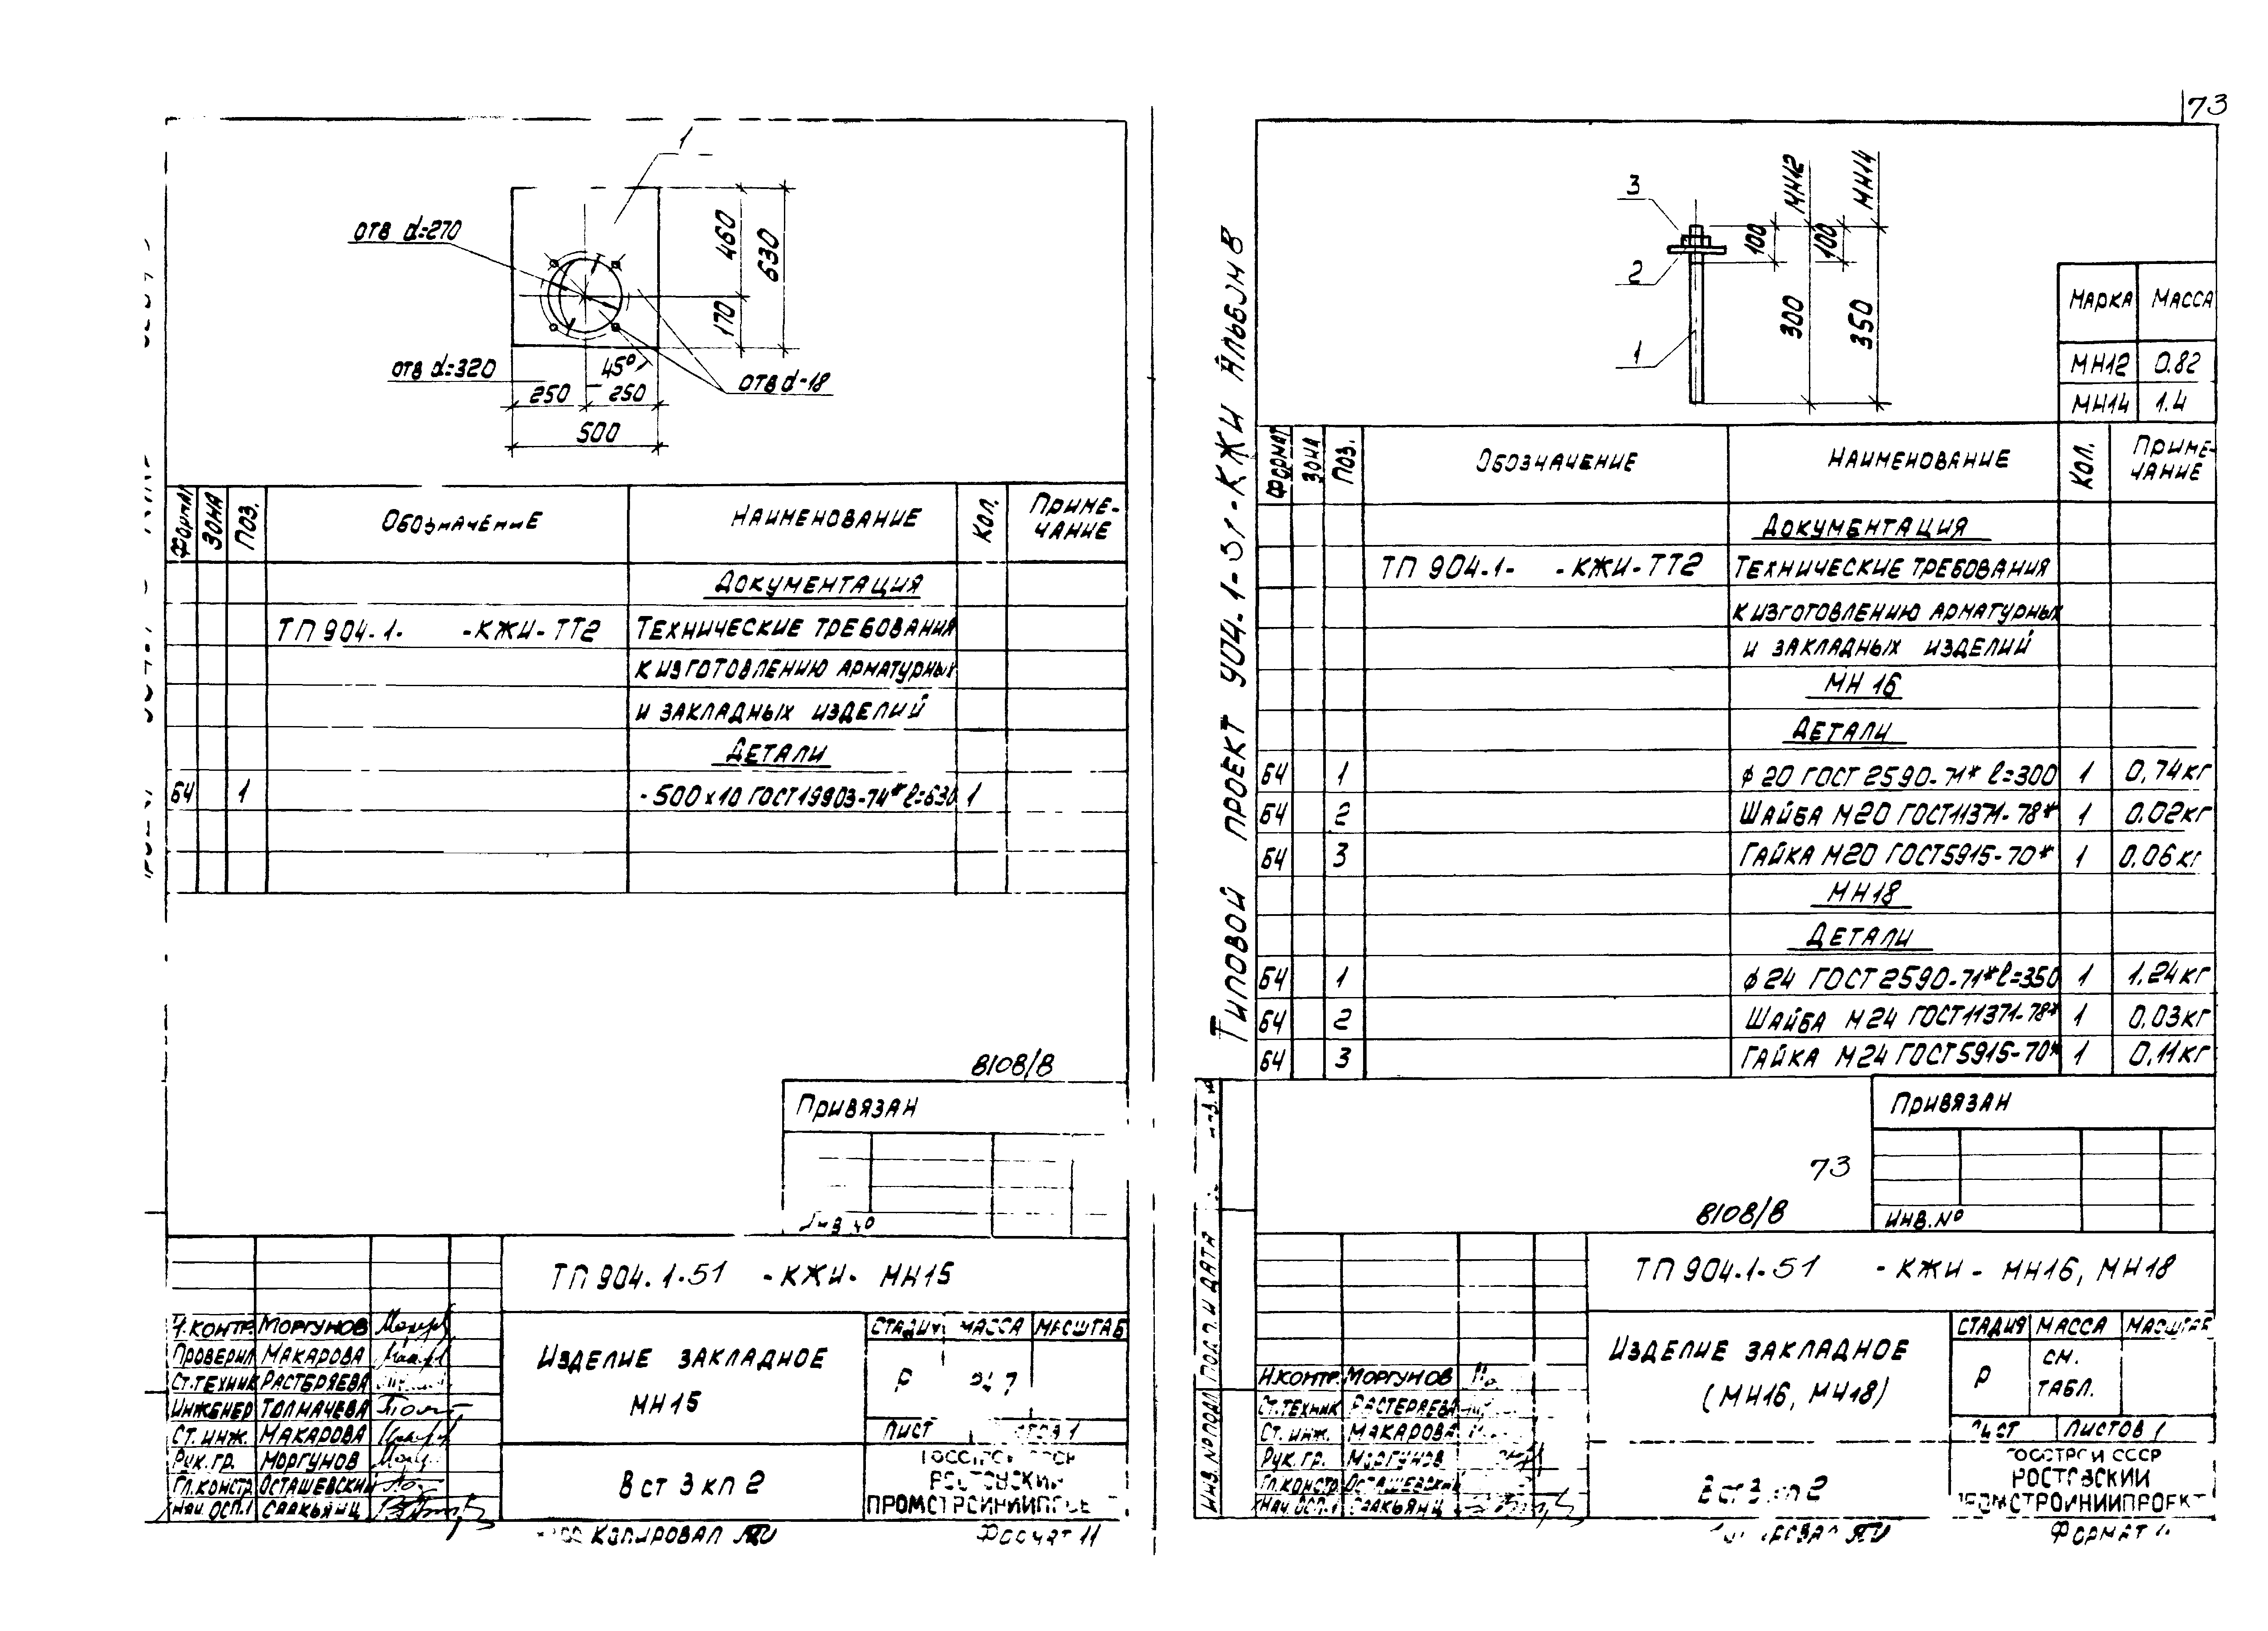 73
1
отв d=270
460
630
170
отв d=320
45°
отв d-18
250
250
500
ЗОНА
ПОЗ.
ОБОЗНАЧЕНИЕ
НАИМЕНОВАНИЕ
КОЛ.
ПРИМЕ-
ЧАНИЕ
ДОКУМЕНТАЦИЯ
ТП 904.1- -КЖИ-ТТ2 ТЕХНИЧЕСКИЕ ТРЕБОВАНИЯ
К ИЗГОТОВЛЕНИЮ АРМАТУРНЫХ
И ЗАКЛАДНЫХ ИЗДЕЛИЙ
ДЕТАЛИ
БЧ 1 - 500 х 10 ГОСТ 19903-74* ℓ=630 1
8108/8
ПРИВЯЗАН
ТП 904.1-51 -КЖИ- МН15
Н.КОНТР. МОРГУНОВ
ПРОВЕРИЛ МАКАРОВА
СТ.ТЕХНИК РАСТЕРЯЕВА
ИНЖЕНЕР ТОЛМАЧЕВА
СТ. ИНЖ. МАКАРОВА
РУК. ГР. МОРГУНОВ
ГЛ.КОНСТР. ОСТАШЕВСКИЙ
НАЧ. ОСП.1 СААКЬЯНЦ
ИЗДЕЛИЕ ЗАКЛАДНОЕ
МН15
СТАДИЯ МАССА МАСШТАБ
Р
ЛИСТ
В ст 3 кп 2
РОСТОВСКИЙ
ПРОМСТРОЙНИИПРОЕ
КОПИРОВАЛ
ФОРМАТ 11
ТИПОВОЙ ПРОЕКТ 904.1-51-КЖИ АЛЬБОМ 8
3
2
1
100
МН12
300
100
МН14
350
МАРКА МАССА
МН12 0.82
МН14 1.4
ФОРМАТ
ЗОНА
ПОЗ.
ОБОЗНАЧЕНИЕ
НАИМЕНОВАНИЕ
КОЛ.
ПРИМЕ-
ЧАНИЕ
ДОКУМЕНТАЦИЯ
ТП 904.1- -КЖИ-ТТ2 ТЕХНИЧЕСКИЕ ТРЕБОВАНИЯ
К ИЗГОТОВЛЕНИЮ АРМАТУРНЫХ
И ЗАКЛАДНЫХ ИЗДЕЛИЙ
МН 16
ДЕТАЛИ
БЧ 1 ϕ 20 ГОСТ 2590-71* ℓ=300 1 0,74кг
БЧ 2 ШАЙБА М20 ГОСТ11371-78* 1 0.02кг
БЧ 3 ГАЙКА М20 ГОСТ5915-70* 1 0,06кг
МН18
ДЕТАЛИ
БЧ 1 ϕ 24 ГОСТ 2590-71* ℓ=350 1 1,24кг
БЧ 2 ШАЙБА М24 ГОСТ11371-78* 1 0,03кг
БЧ 3 ГАЙКА М24 ГОСТ5915-70* 1 0,11кг
ПРИВЯЗАН
73
8108/8
ИНВ.№
ИНВ. № ПОДЛ ПОДП. И ДАТА
ТП 904.1-51 -КЖИ- МН16, МН18
Н.КОНТР. МОРГУНОВ
СТ.ТЕХНИК РАСТЕРЯЕВА
СТ. ИНЖ. МАКАРОВА
РУК. ГР. МОРГУНОВ
ГЛ.КОНСТР. ОСТАШЕВСКИЙ
НАЧ. ОСП.1 СААКЬЯНЦ
ИЗДЕЛИЕ ЗАКЛАДНОЕ
(МН16, МН18)
СТАДИЯ МАССА МАСШТАБ
Р СМ.
ТАБЛ.
ЛИСТ ЛИСТОВ 1
В ст 3 кп 2
ГОССТРОЙ СССР
РОСТОВСКИЙ
ПРОМСТРОЙНИИПРОЕКТ
ФОРМАТ